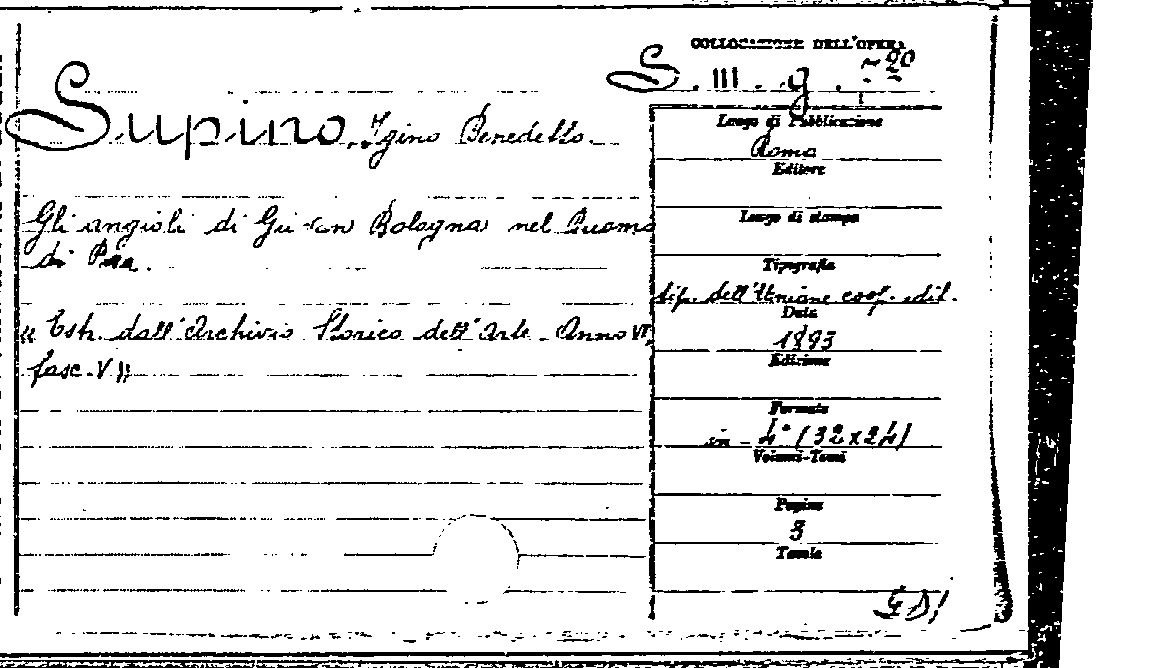 COLLOCAZIONE DELL'OPERA
S. III. g.
Supino. Igino Benedetto.
Gli angioli di Gian Bologna nel Duomo
di Pisa.
« Estr. dall'Archivio Storico dell'Arte - Anno VI,
fasc. V »
Luogo di Pubblicazione
Roma
Editore
Luogo di stampa
Tipografia
tip. dell'Unione coop. edit.
Data
1893
Edizione
Formato
in - 4° (32x24)
Volumi-Tomi
Pagine
Tavole